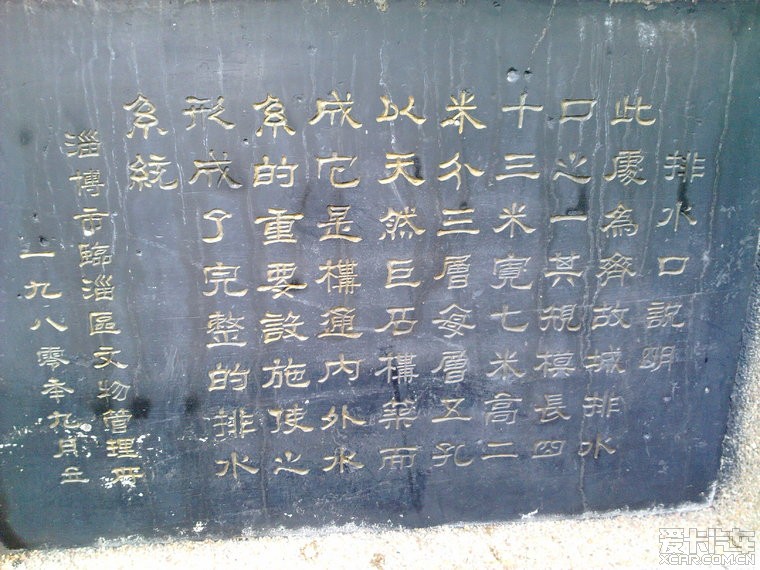 排水口説明
此處為齊故城排水
口之一其規模長四
十三米寬七米高二
米分三層每層五孔
以天然巨石構築而
成它是構通内外水
系的重要設施使之
形成了完整的排水
系統
淄博市臨淄區文物管理所
一九八零年九月立
爱卡汽车
XCAR.COM.CN